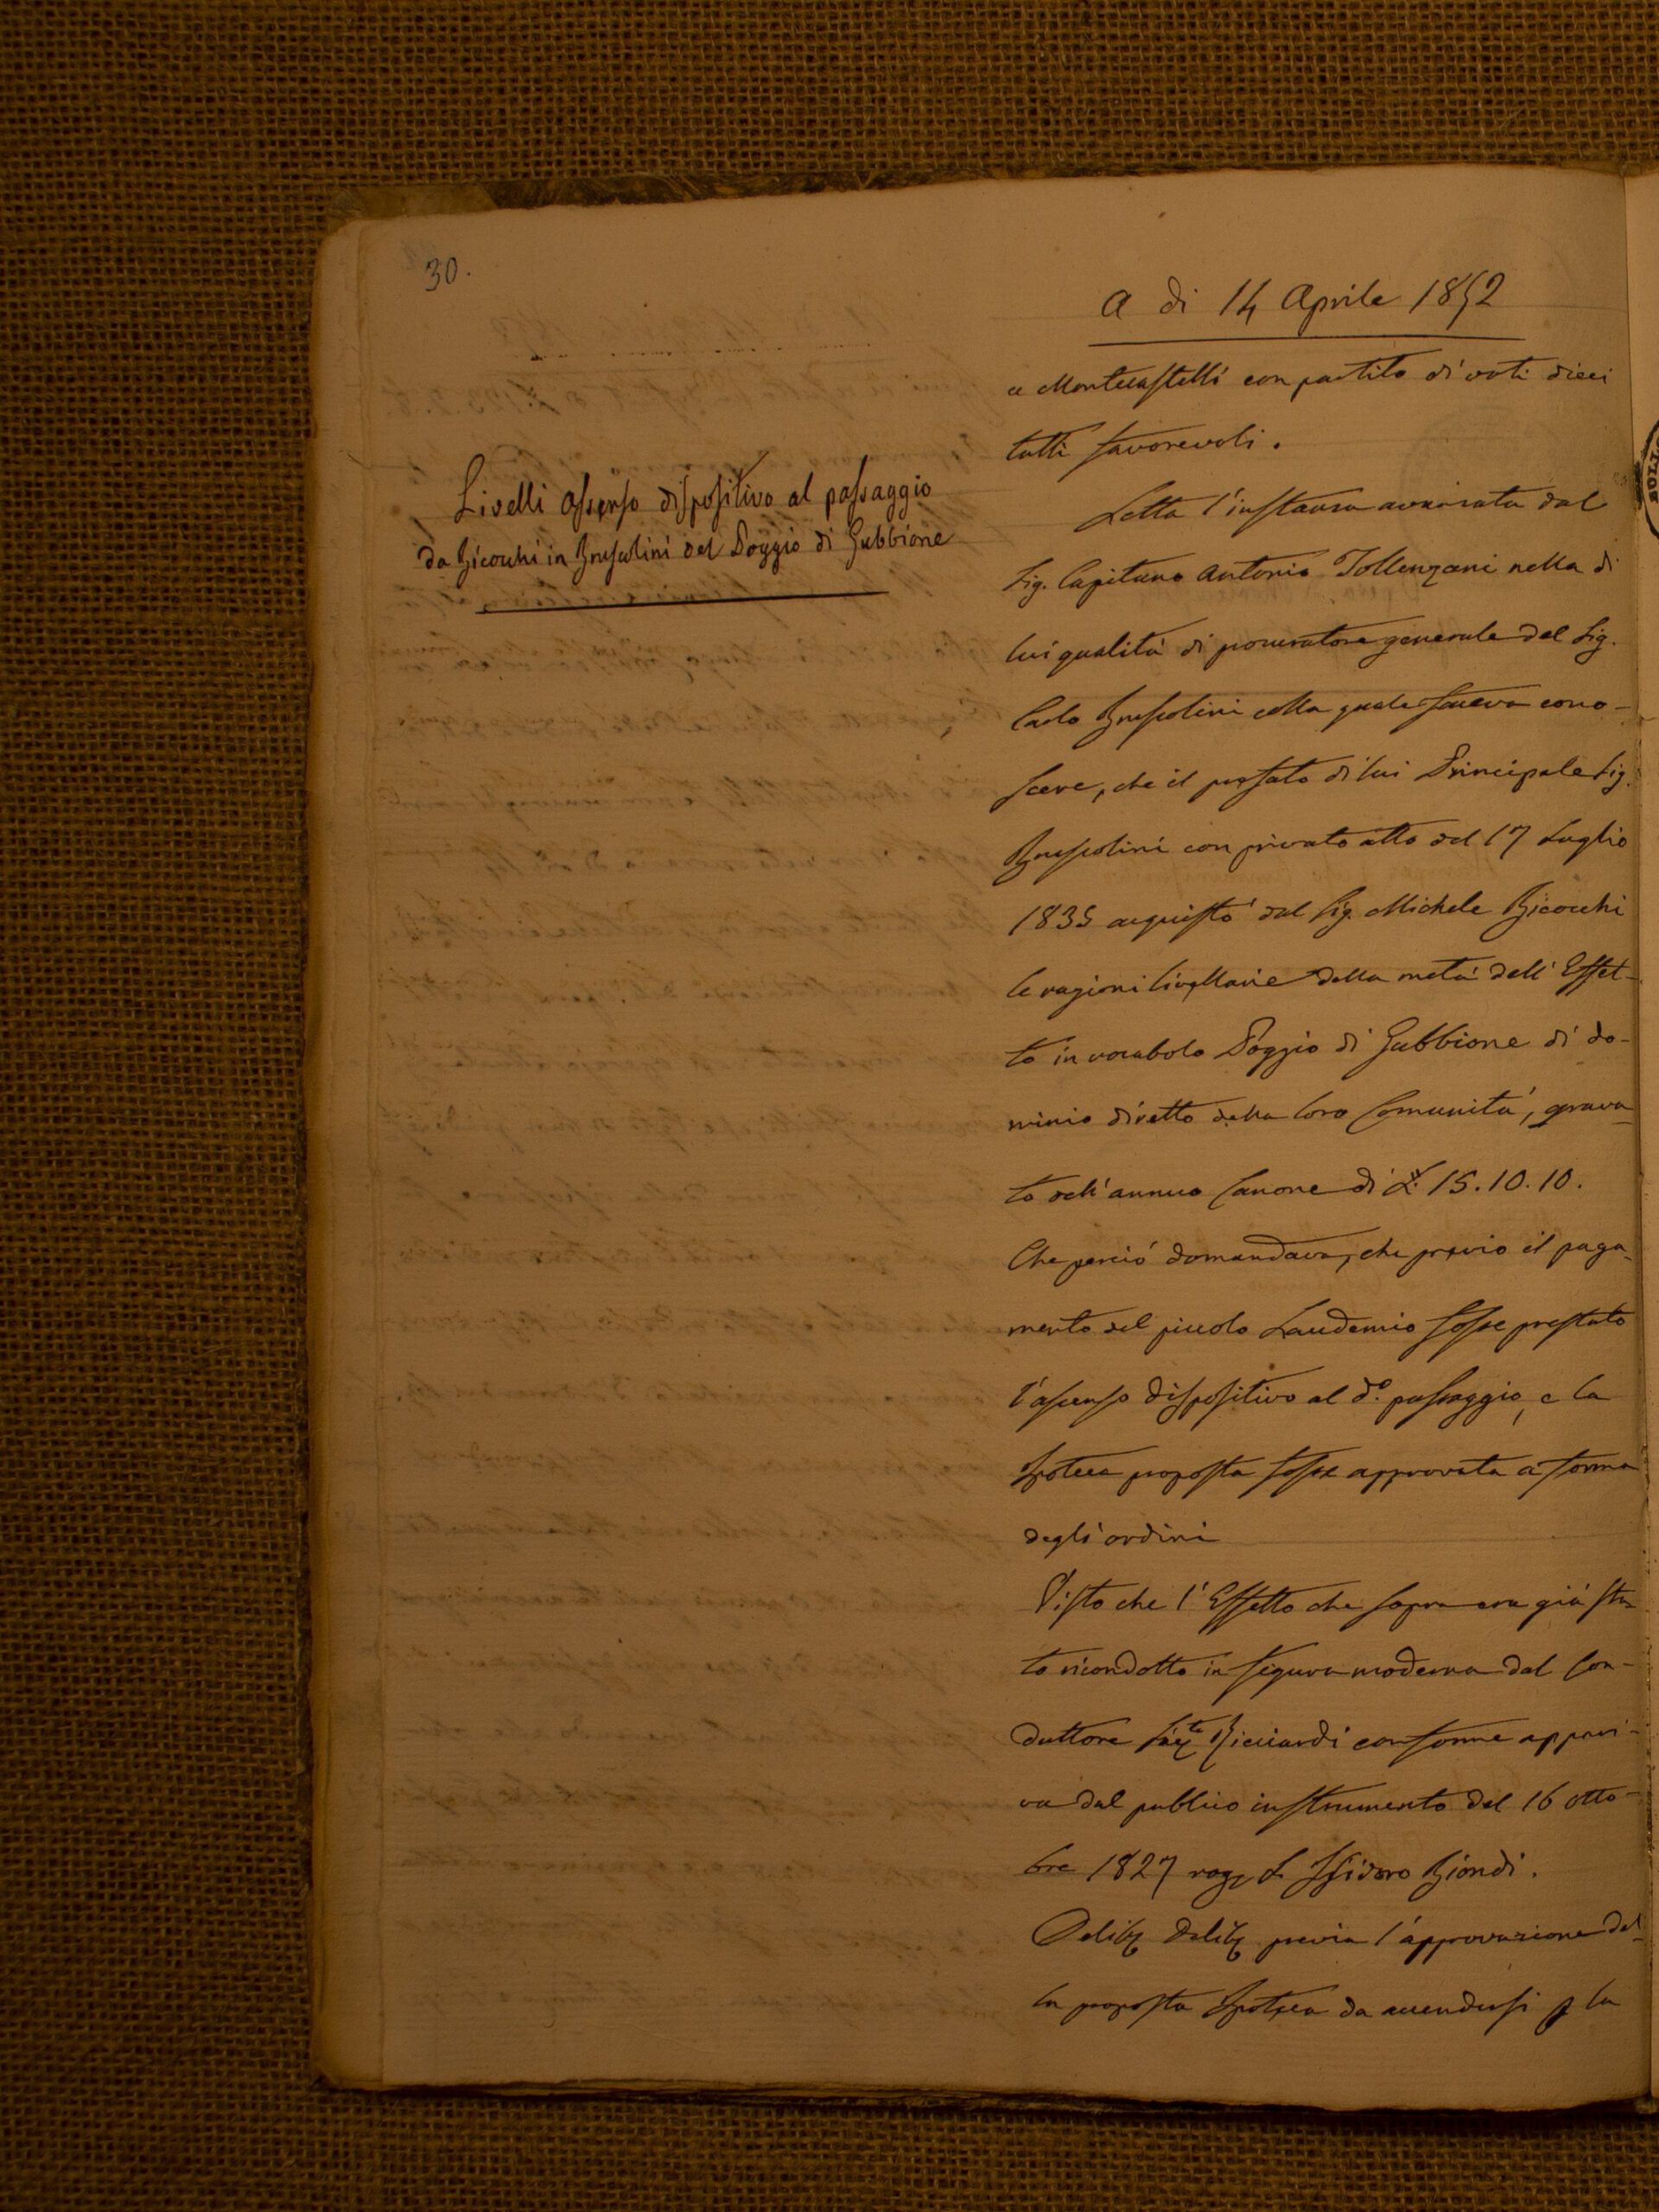 30.
A di 14 Aprile 1852
Livelli assenso dispositivo al passaggio
da Bicocchi in Bruscolini del Poggio di Gubbione
a Montecastelli con partito di voti dieci
tutti favorevoli.
Letta l'instanza avanzata dal
Sig. Capitano Antonio Tollenzani nella di
lui qualità di procuratore generale del Sig.
Carlo Bruscolini colla quale faceva cono-
scere, che il prefato di lui Principale Sig.
Bruscolini con privato atto del 17 Luglio
1835 acquistò dal Sig. Michele Bicocchi
le ragioni livellarie della metà dell'Effet-
to in vocabolo Poggio di Gubbione di do-
minio diretto della loro Comunità, grava-
to dell'annuo Canone di £. 15.10.10.
Che perciò domandava, che previo il paga-
mento del piccolo Laudemio fosse prestato
l'assenso dispositivo al d.o passaggio, e la
Ipoteca proposta fosse approvata a forma
degli ordini
Visto che l'Effetto che sopra era già sta-
to ricondotto in figura moderna dal Con-
duttore Ricciardi conforme appari-
va dal publico instrumento del 16 otto-
bre 1827 rog. Isidoro Biondi.
Delib. Delib. previa l'approvazione del-
la proposta Ipoteca da accendersi p la